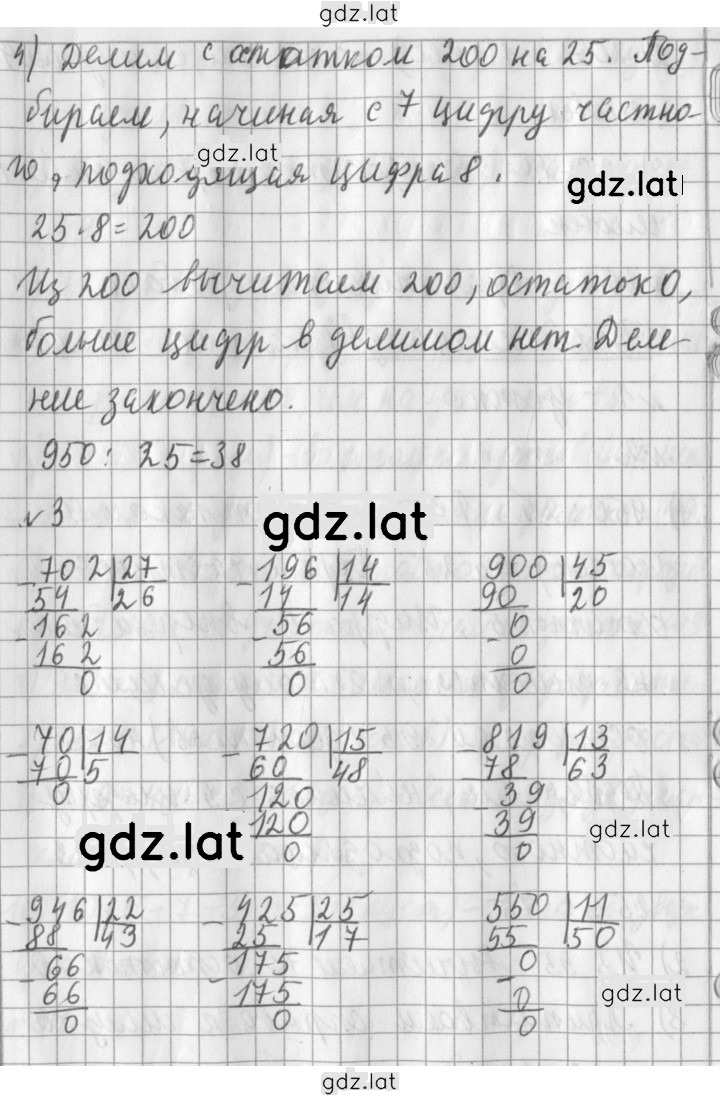 gdz.lat
4) Делим с остатком 200 на 25. Под-
бираем, начиная с 7 цифру частно-
го, подходящая цифра 8.
gdz.lat
gdz.lat
25·8=200
Из 200 вычитаем 200, остаток 0,
больше цифр в делимом нет. Деле-
ние закончено.
950: 25=38
№3
gdz.lat
-702|27 -196|14 900|45
54 26 14 14 90 20
-162 -56 -0
162 56 0
0 0 0
-70|14 -720|15 -819|13
70 5 60 48 78 63
0 -120 -39
120 39
0 0
gdz.lat
gdz.lat
-946|22 -425|25 550|11
88 43 25 17 55 50
-66 -175 -0
66 175 0
0 0 0
gdz.lat
gdz.lat